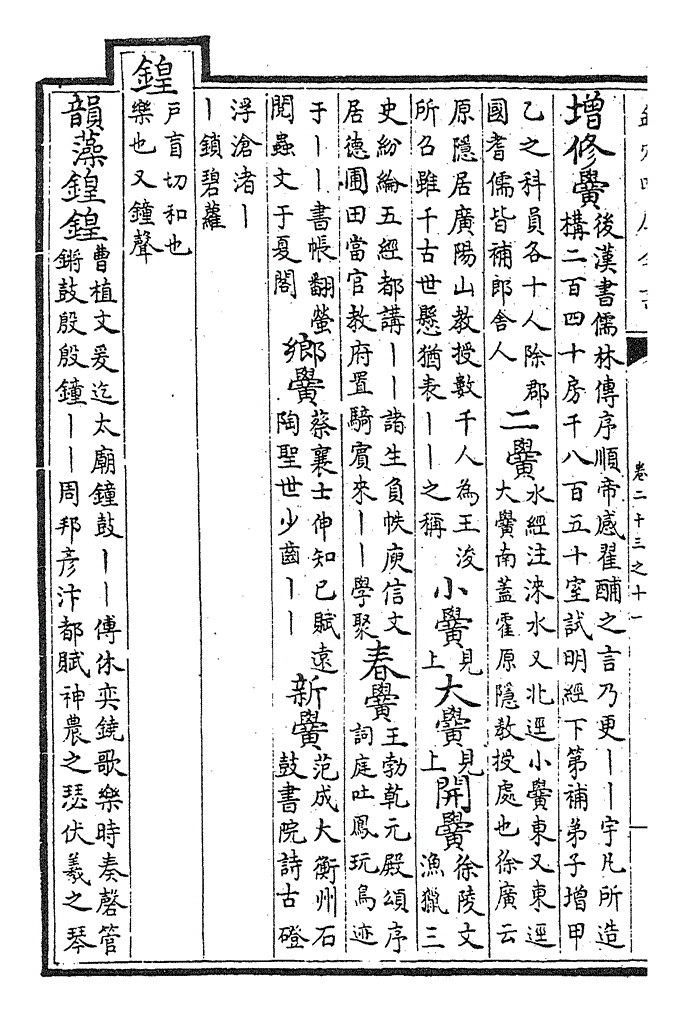 卷二十三之十一
增修黌後漢書儒林傳序順帝感翟酺之言乃更丨丨宇凡所造
構二百四十房千八百五十室試明經下第補弟子增甲
乙之科員各十人除郡
國耆儒皆補郎舍人
二黌水經注淶水又北逕小黌東又東逕
大黌南蓋霍原隱教授處也徐廣云
原隱居廣陽山教授數千人為王浚
所召雖千古世懸猶表丨丨之稱
小黌見上
大黌見上
開黌徐陵文
漁獵三
史紛綸五經都講丨丨諸生負帙庾信文
居德圃田當官教府置騎賓來丨丨學聚
春黌王勃乾元殿頌序
詞庭吐鳳玩鳥迹
于丨丨書帳翻螢
閱蟲文于夏閣
鄉黌蔡襄士伸知已賦遠
陶聖世少齒丨丨
新黌范成大衡州石
鼓書院詩古磴
浮滄渚丨
丨鎖碧蘿
鍠
戶盲切和也
樂也又鐘聲
韻藻鍠鍠曹植文爰迄太廟鐘鼓丨丨傅休奕鐃歌樂時奏磬管
鏘鼓殷殷鐘丨丨周邦彦汴都賦神農之瑟伏羲之琴